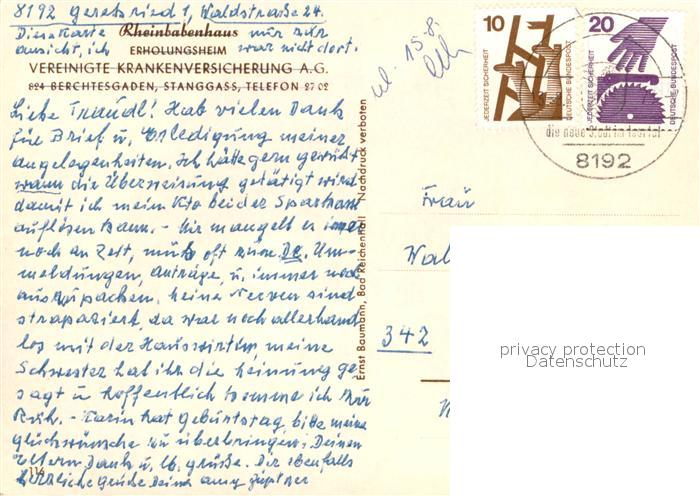 8192 Geretsried 1, Waldstraße 24.
Diese Karte Rheinbabenhaus nur zur
ansicht, ich ERHOLUNGSHEIM war nicht dort.
VEREINIGTE KRANKENVERSICHERUNG A.G.
824 BERCHTESGADEN, STANGGASS, TELEFON 27 02
Liebe Traudl! Hab vielen Dank
für Brief u. Erledigung meiner
angelegenheiten. Ich hätte gern gewußt
wann die Überweisung getätigt wird
damit ich mein Kto bei der Sparkasse
auflösen kann. - Mir mangelt es immer
noch an Zeit, muß oft zum Dr. Um-
meldungen, anträge, u. immer noch
auszupacken, meine Nerven sind
strapaziert, da war noch allerhand
los mit der Hauswirtin meine
Schwester hat ihr die meinung ge-
sagt u. hoffentlich komme ich zur
Ruh. - Karin hat Geburtstag, bitte meine
Glückwünsche zu überbringen, Deinen
Eltern Dank u. lb. grüße. Dir ebenfalls
herzliche Grüße Deine
116
Ernst Baumann, Bad Reichenhall Nachdruck verboten
15.8.
10
JEDERZEIT SICHERHEIT
DEUTSCHE BUNDESPOST
20
JEDERZEIT SICHERHEIT
DEUTSCHE BUNDESPOST
die neue Stadt im Isartal
8192
Frau
Wal
342
privacy protection
Datenschutz